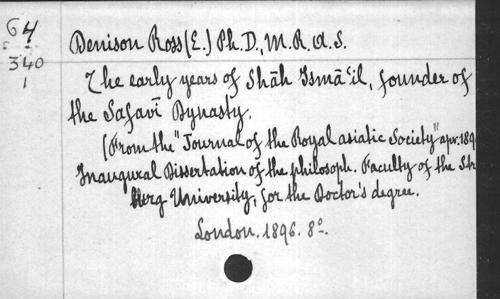 64
340
1
Denison Ross (E.) Ph. D., M. R. A. S.
The early years of Shāh Ismā'il, founder of
the Safavī Dynasty.
(From the "Journal of the Royal asiatic Society" apr. 189
Inaugural Dissertation of the philosoph. Faculty of the Str
burg University, for the Doctor's degree.
London. 1896. 8°.